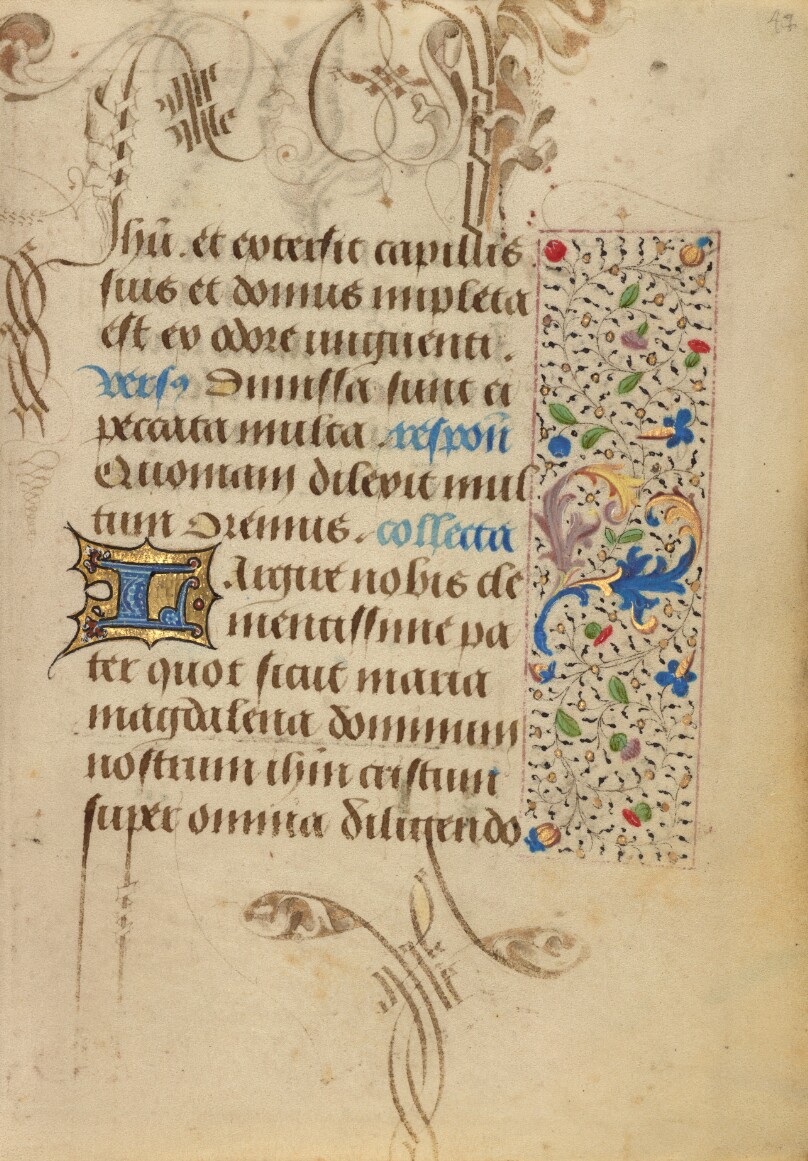 47
Jhū. et extersit capillis
suis et domus impleta
est ex odore unguenti.
vers9 Dimissa sunt ei
peccata multa. respoñ
Quoniam dilexit mul
tum Oremus. collecta
Largire nobis cle
mentissime pa
ter quot sicut maria
magdalena dominum
nostrum ihm cristum
super omnia diligendo